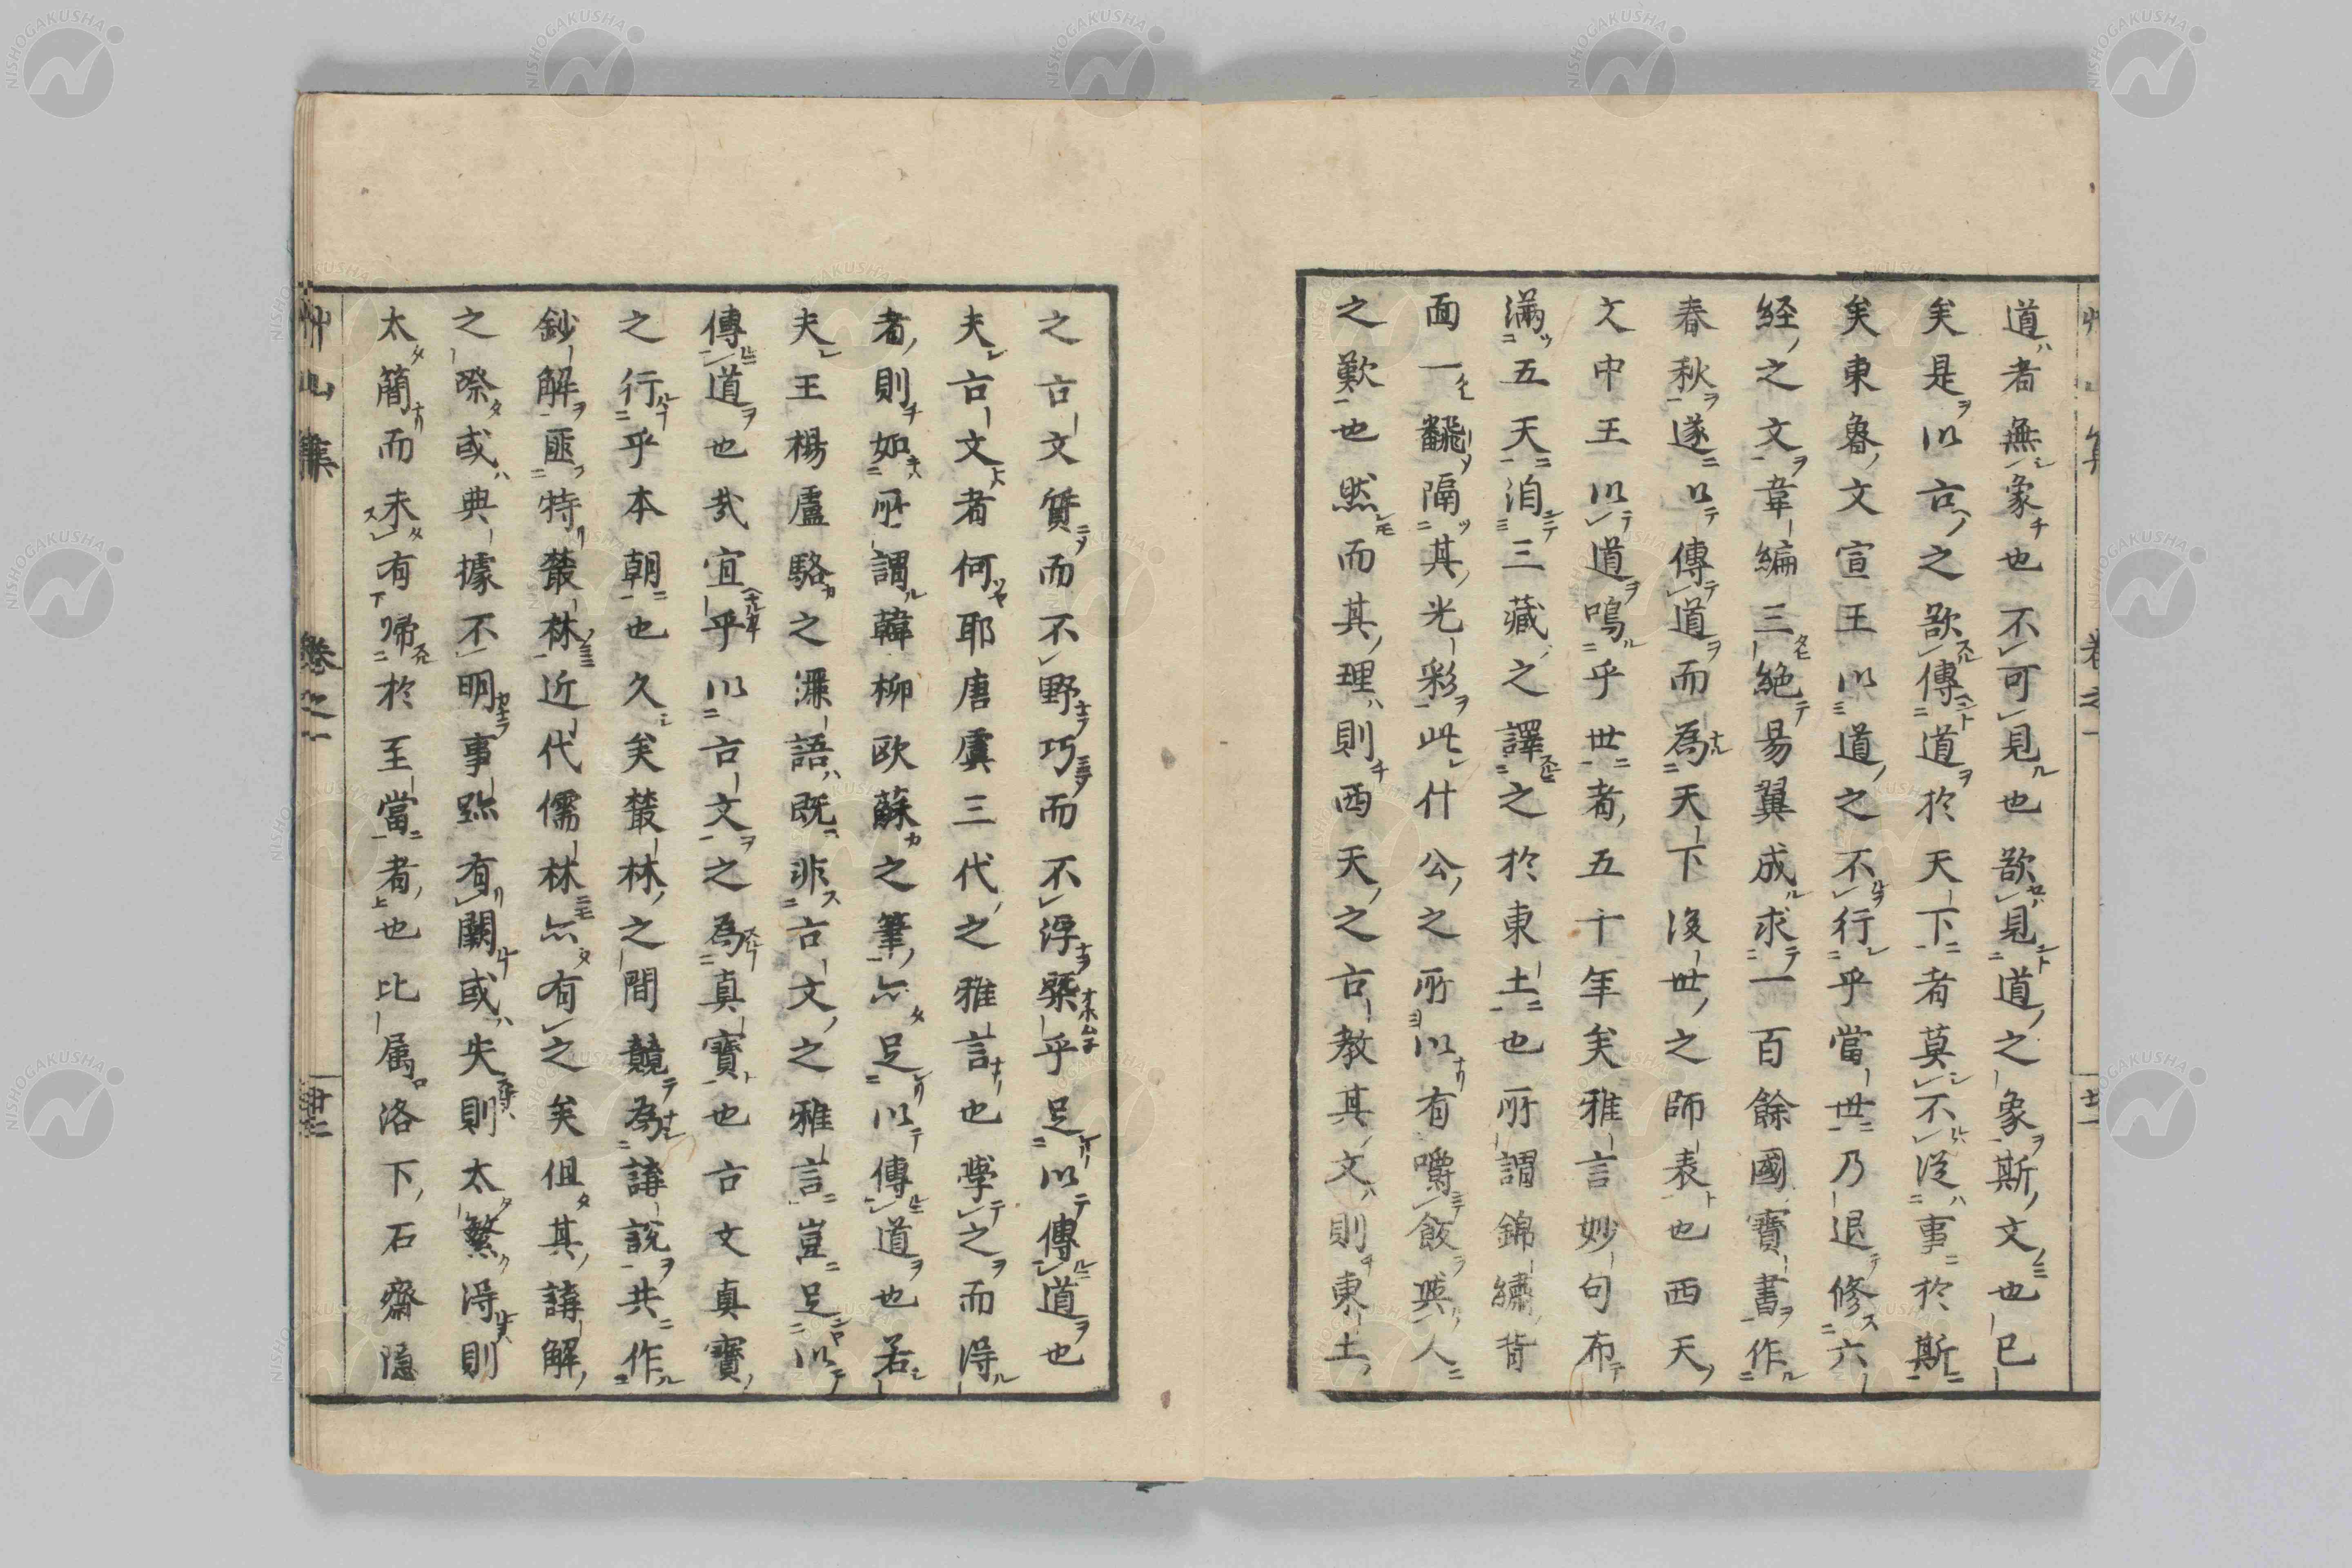 道者無象也不可見也欲見道之象斯文也已
矣是以古之欲傳道於天下者莫不従事於斯
矣東魯文宣王以道之不行乎當世乃退修六
経之文韋編三絶易翼成求一百餘國寶書作
春秋遂以傳道而為天下後世之師表也西天
文中王以道鳴乎世者五十年矣雅言妙句布
満五天洎三藏之譯之於東土也所謂錦繡背
面一飜隔其光彩此什公之所以有嚼飯與人
之歎也然而其理則西天之古教其文則東土
之古文質而不野巧而不浮槩乎足以傳道也
夫古文者何耶唐虞三代之雅言也學之而淂
者則如所謂韓柳欧蘇之筆亦足以傳道也若
夫王楊盧駱之澤語既非古文之雅言豈足以
傳道也哉宜乎以古文之為真寶也古文真寶
之行乎本朝也久矣叢林之間競為講説共作
鈔解匪特叢林近代儒林亦有之矣但其講解
之際或典據不明事跡有闕或失則太繁淂則
太簡而未有帰於至當者也比属洛下石齋隠
艸山集 卷之一 廿二